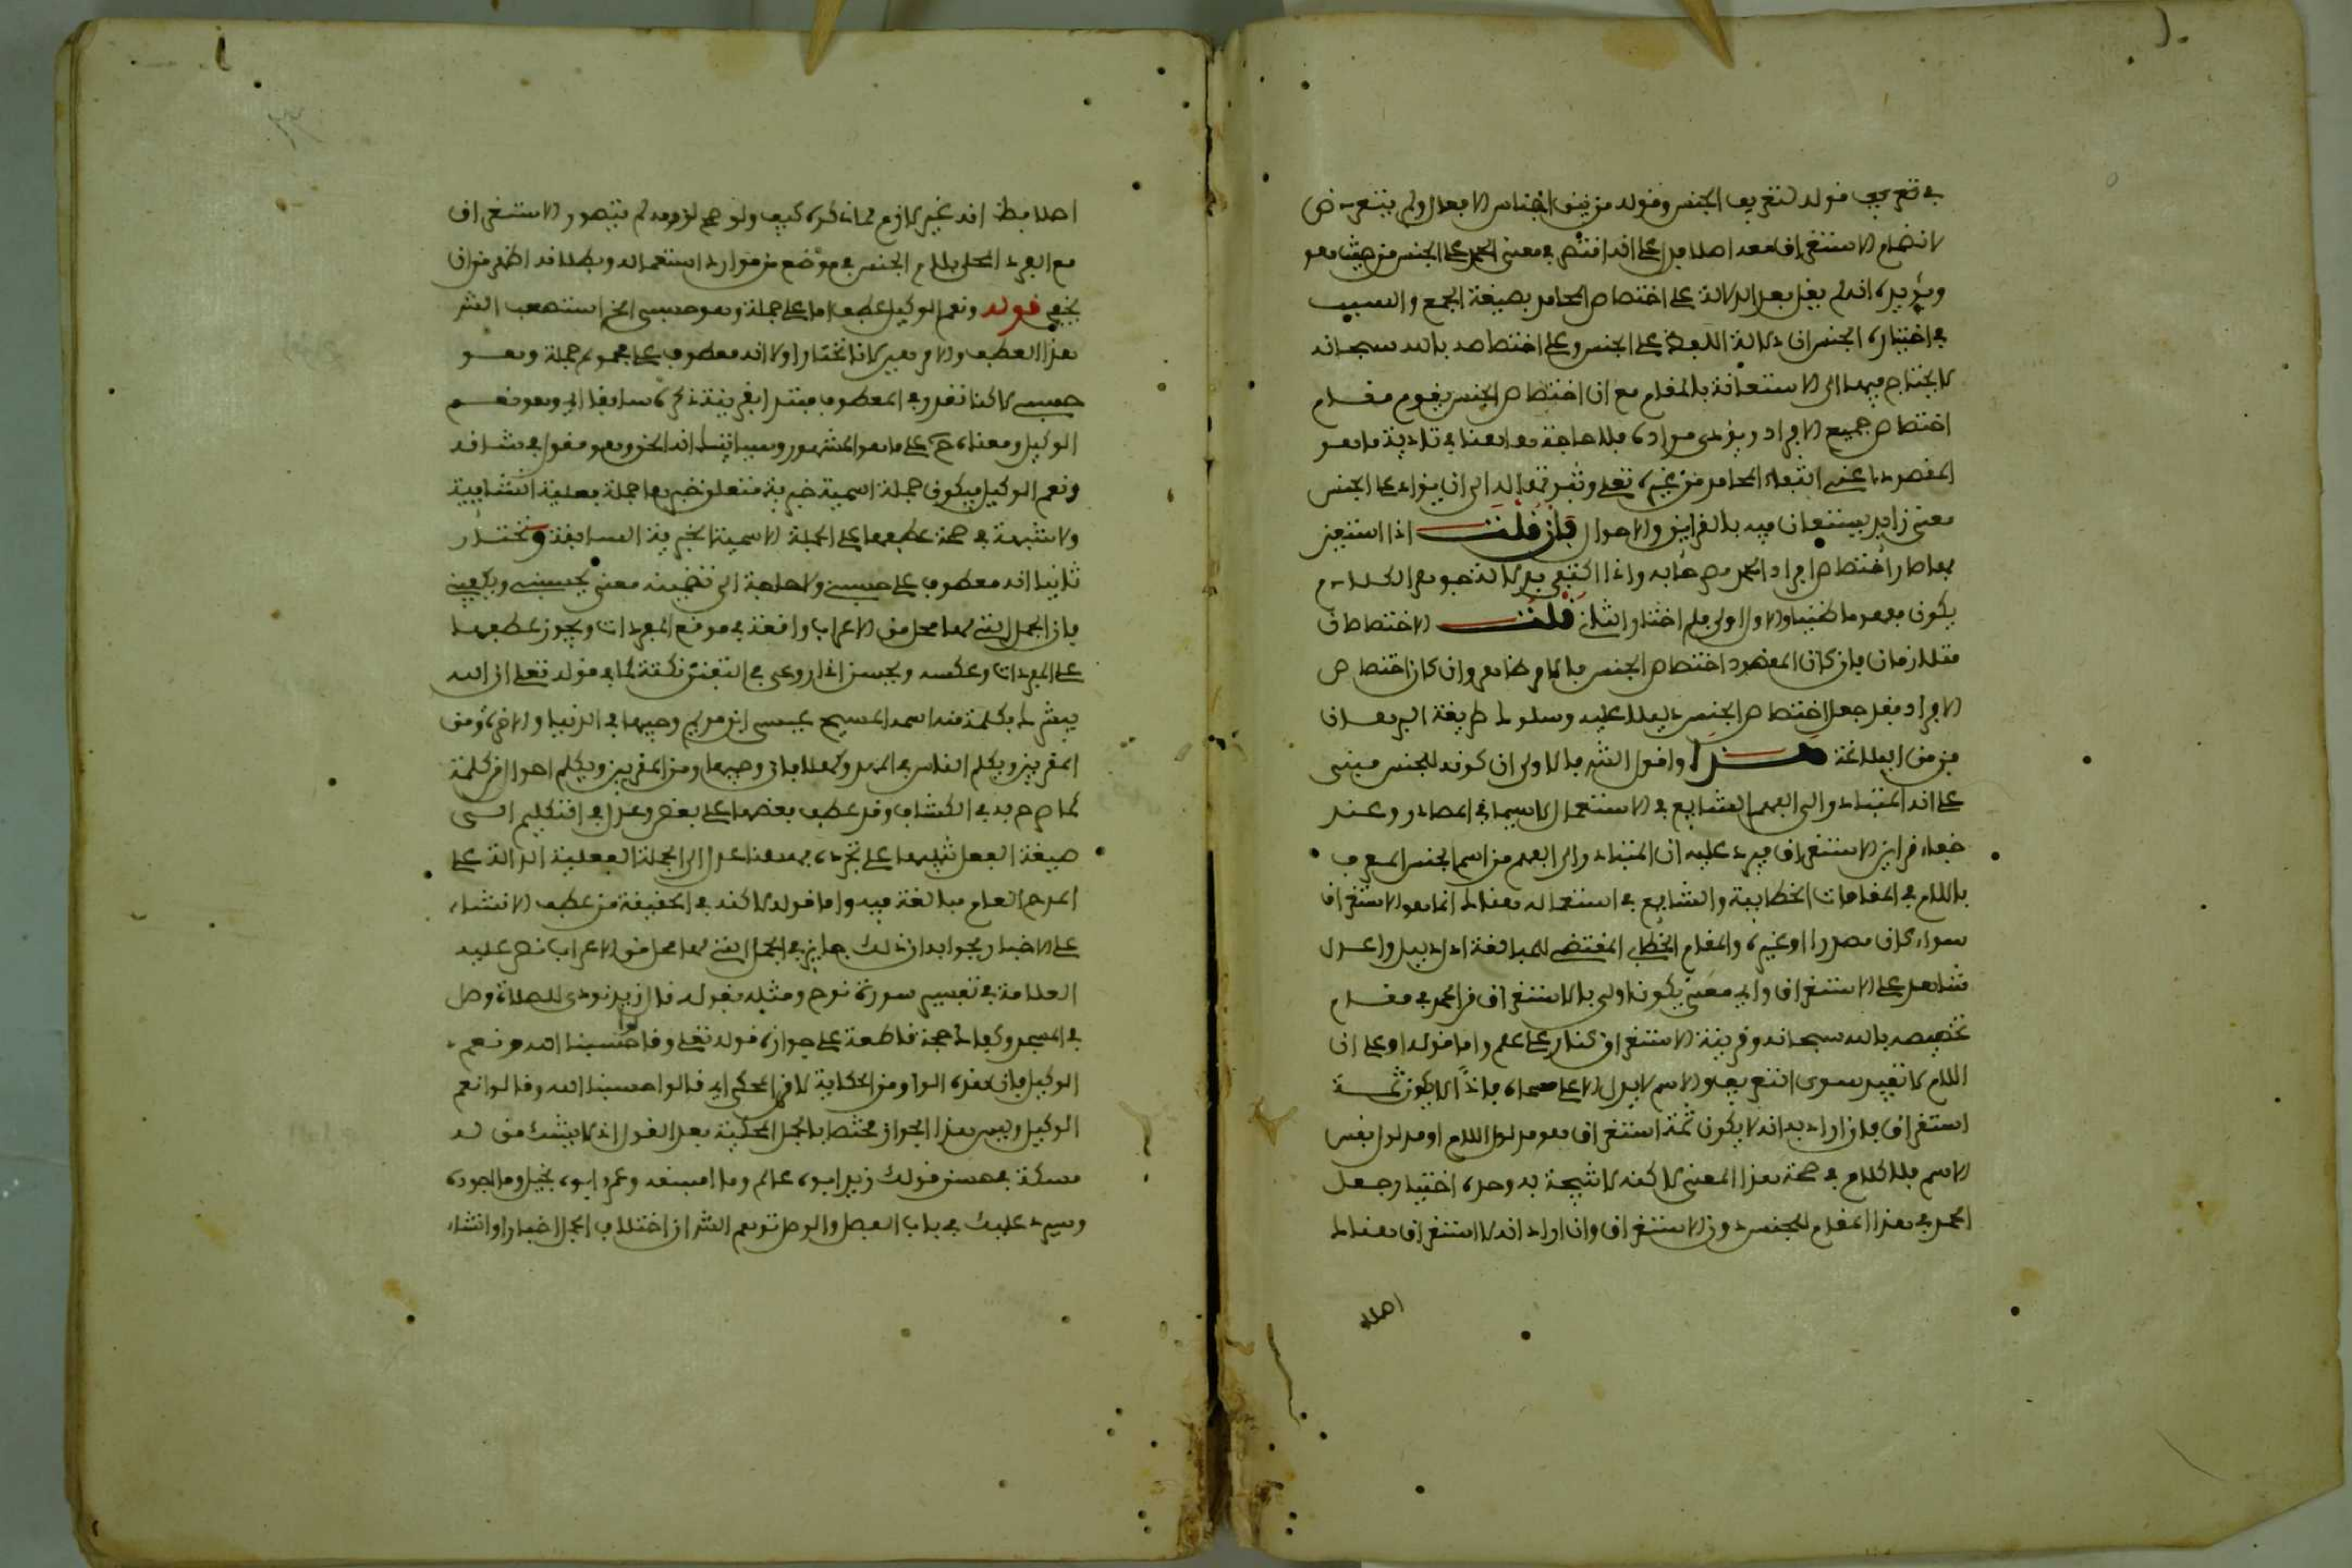 في تعريف قوله لتعريف الجنس وقوله من بين اجناس الافعال ولم يتعرض
لانضمام الاستغراق معه اصلا يدل على انه اقتصر في معنى الحمد على الجنس من حيث هو
ويؤيده انه لم يقل بعد الدلالة على اختصاص المحامد بصيغة الجمع والسبب
في اختياره الجنس ان دلالة اللفظ على الجنس وعلى اختصاصه بالله سبحانه
لا يحتاج فيهما الى الاستعانة بالمقام مع ان اختصاص الجنس يقوم مقام
اختصاص جميع الافراد ويؤدى مؤداه فلا حاجة هاهنا في تادية ما هو
المقصود اعنى انتفاء المحامد من غيره تعلى وثبوتها له الى ان يزاد على الجنس
معنى زايد يستعان فيه بالقراين والاحوال فان قلت اذا استعين
بها صار اختصاص افراد الحمد مصرحا به واذا اكتفى بدلالة جوهر الكلام
يكون مفهوما ضمنيا والاول اولى فلم اختار الثاني قلت الاختصاصان
متلازمان فان كان المقصود اختصاص الجنس فالامر ظاهر وان كان اختصاص
الافراد فقد جعل اختصاص الجنس دليلا عليه وسلوك طريقة البرهان
فن من البلاغة هذا واقول الشر ما الاولى ان كونه للجنس مبنى
على انه المتبادر الى الفهم الشايع في الاستعمال لاسيما في المصادر وعند
خفاء قراين الاستغراق فيرد عليه ان المتبادر الى الفهم من اسم الجنس المعرف
باللام في المقامات الخطابية والشايع في استعماله هنالك انما هو الاستغراق
سواء كان مصدرا او غيره والمقام الخطابي المقتضى للمبالغة ادل دليل واعدل
شاهد على الاستغراق واي معنى يكون اولى بالاستغراق من الحمد في مقام
تخصيصه بالله سبحانه وقرينة الاستغراق كنار على علم واما قوله او على ان
اللام لا تفيد سوى التعريف والاسم لا يدل الا على مسماه فاذا لا يكون ثمة
استغراق فان اراد به انه لا يكون ثمة استغراق هو مدلول اللام او مدلول نفس
الاسم فلا كلام في صحة هذا المعنى لاكنه لا نتيجة به وحده اختيار جعل
الحمد في هذا المقام للجنس دون الاستغراق وان اراد انه لا استغراق هنالك
اصلا
اصلا فظ انه غير لازم لما ذكره كيف ولو صح لزومه لم يتصور الاستغراق
مع المفرد المحلى بلام الجنس في موضع من موارد استعماله وبطلانه اظهر من ان
يخفى قوله ونعم الوكيل عطف اما على جملة وهو حسبى الخ استصعب الشر
هذا العطف والامر هين لانا نختار اولا انه معطوف على مجموع جملة وهو
حسبى لاكنا نقدر في المعطوف مبتدا بقرينة ذكره سابقا اي وهو نعم
الوكيل ومعناه ح على ما هو المشهور وسياتيك انه الحق وهو مقول في شانه
ونعم الوكيل فيكون جملة اسمية خبرية متعلق خبرها جملة فعلية انشايية
ولا شبهة في صحة عطفها على الجملة الاسمية الخبرية السابقة ونختار
ثانيا انه معطوف على حسبى ولا حاجة الى تضمينه معنى يحسبنى ويكفينى
فان الجمل التى لها محل من الاعراب واقعة في موقع المفردات ويجوز عطفها
على المفردات وعكسه ويحسن اذا روعى في التفنن نكتة كما في قوله تعلى ان الله
يبشرك بكلمة منه اسمه المسيح عيسى ابن مريم وجيها في الدنيا والاخرة ومن
المقربين ويكلم الناس في المهد وكهلا فان وجيها ومن المقربين ويكلم احوال من كلمة
كما صرح به في الكشاف وقد عطف بعضها على بعض وعدل في التكليم الى
صيغة الفعل تنبيها على تجدده فههنا عدل الى الجملة الفعلية الدالة على
المدح العام مبالغة فيه واما قوله لاكنه في الحقيقة من عطف الانشاء
على الاخبار فجوابه ان ذلك جايز في الجمل التى لها محل من الاعراب نص عليه
العلامة في تفسير سورة نوح ومثله بقوله قال زيد نودى للصلاة وصل
في المسجد وكفاك حجة قاطعة على جوازه قوله تعلى وقالوا حسبنا الله ونعم
الوكيل فان هذه الواو من الحكاية لا من المحكى اي قالوا حسبنا الله وقالوا نعم
الوكيل وليس هذا الجواز مختصا بالجمل المحكية بعد القول اذ لا يشك من له
مسكة في حسن قولك زيد ابوه عالم وما افسقه وعمرو ابوه بخيل وما اجوده
وسيرد عليك في باب الفصل والوصل توهم الشر ان اختلاف الجمل اخبارا وانشاء